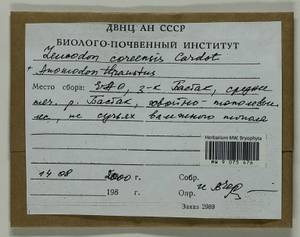 ДВНЦ АН СССР
БИОЛОГО-ПОЧВЕННЫЙ ИНСТИТУТ
Leucodon coreensis Cardot
+ Anomodon thraustus
Место сбора: ЕАО, з-к Бастак, среднее
теч. р. Бастак, хвойно-тополевый
лес, на сучьях валежного тополя
Herbarium MW, Bryophyta
MW 9 075 676
14 08 2000 г.
Собр.
198 г.
Опр.
Заказ 2989